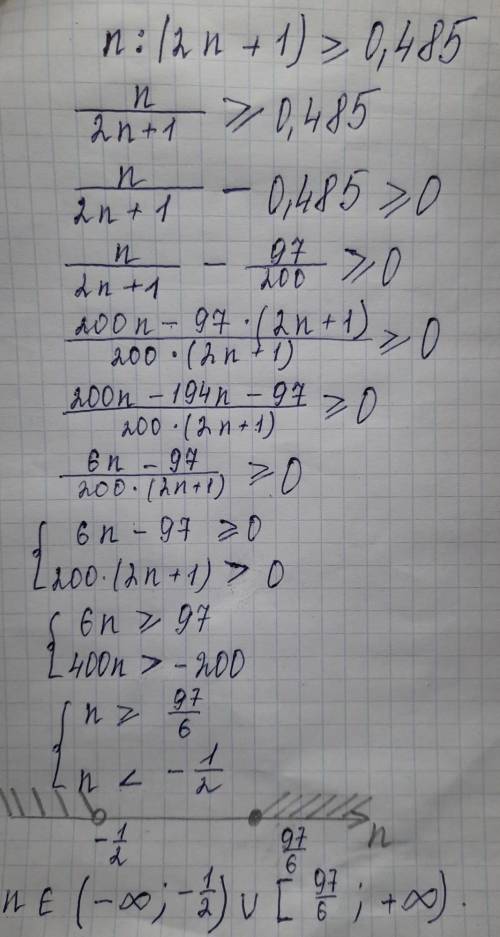 n : (2n + 1) ≥ 0,485
n/(2n+1) ≥ 0,485
n/(2n+1) − 0,485 ≥ 0
n/(2n+1) − 97/200 ≥ 0
(200n − 97 · (2n+1))/(200 · (2n+1)) ≥ 0
(200n − 194n − 97)/(200 · (2n+1)) ≥ 0
(6n − 97)/(200 · (2n+1)) ≥ 0
{ 6n − 97 ≥ 0
200 · (2n+1) > 0
{ 6n ≥ 97
400n > −200
{ n ≥ 97/6
n < −1/2
−1/2 97/6 n
n ∈ (−∞; −1/2) ∪ [97/6; +∞).